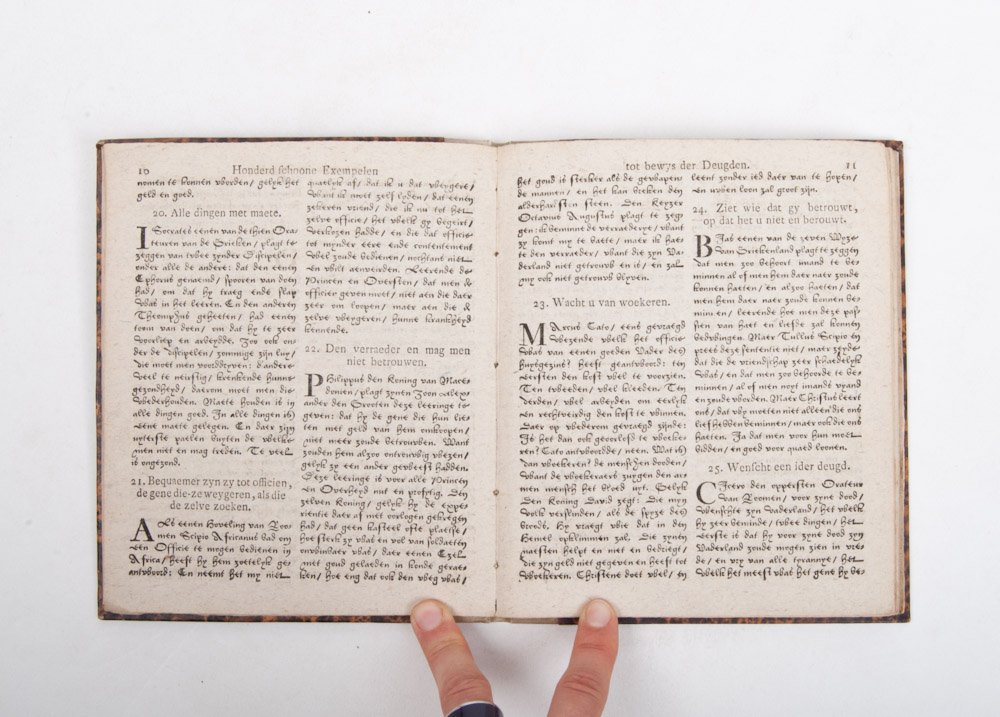 10 Honderd schoone Exempelen
nomen te konnen worden / gelyk het
geld en goed.
20. Alle dingen met maete.
ISocrates eenen van de thien Ora-
teuren van de Grieken / plagt te
zeggen van twee zynder Discipelen /
onder alle de andere: dat den eenen
Ephorus genaemd / spooren van doen
had / om dat hy traeg ende slap
was in het leeren. En den anderen
Theompsus geheeten / had eenen
toom van doen / om dat hy te zeer
voorliep en arbeydde. Zoo ook on-
der de discipelen / zommige zijn luy /
die moet men voortdryven: d'andere
veel te neirstig / krenkende hunne
gezondheyd / daerom moet men die
wederhouden. Maete houden is in
alle dingen goed. In alle dingen is
eene maete gelegen. En daer zijn
uyterste paelen buyten de welke
men niet en mag treden. Te veel
is ongezond.
21. Bequaemer zyn zy tot officien,
de gene die-ze weygeren, als die
de zelve zoeken.
Als eenen Hoveling van Roo-
men Scipio Africanus bad om
een Officie te mogen bedienen in
Africa / heeft hy hem zoetelyk ge-
antwoord: En neemt het my niet
quaelyk af / dat ik u dat weygere /
want ik moet zelf lyden / dat eenen
zekeren vriend / die ik nu tot het
zelve officie / het welk gy begeirt /
verkozen hadde / en die dat officie
tot mynder eere ende contentement
wel zoude bedienen / nochtans niet
en wilt aenveirden. Leerende de
Princen en Oversten / dat men de
officien geven moet / niet aen die daer
zeer om loopen / maer aen die de
zelve weygeren / hunne krankheyd
kennende.
22. Den verraeder en mag men
niet betrouwen.
PHilippus den Koning van Mace-
donien / plagt zynen Zoon Alex-
ander den Grooten deze leeringe te
geven: dat hy de gene die hun lie-
ten met geld van hem omkoopen /
niet meer zoude betrouwen. Want
zouden hem alzoo ontrouwig wezen /
gelyk zy een ander geweest hadden.
Deze leeringe is voor alle Princen
en Overheyd nut en profytig. Den
zelven Koning / gelyk hy de expe-
rientie daer af met oorlogen gekregen
had / dat geen kasteel ofte plaetse /
hoe sterk zy was en vol van soldaeten
onwinbaer was / daer eenen Ezel
met goud gelaeden in konde gerae-
ken / hoe eng dat ook den weg was /
tot bewys der Deugden. 11
het goud is sterker als de gewapen-
de mannen / en het kan breken den
alderhardsten steen. Den Keyzer
Octavius Augustus plagt te zeg-
gen: ik beminne de verraederye / want
zy komt my te baete / maer ik haet-
te den verraeder / want die zyn Va-
derland niet getrouw en is / en zal
my ook niet getrouw blyven.
23. Wacht u van woekeren.
MArcus Cato / eens gevraegd
wezende welk het officie
was van eenen goeden Vader des
huysgezins? heeft geantwoord: ten
eersten den kost wel te voorzien.
Ten tweeden / wel kleeden. Ten
derden / wel arbeyden om eerlyk
en rechtveirdig den kost te winnen.
Daer op wederom gevraegd zijnde:
Is het dan ook geoorlofd te woeke-
ren? Cato antwoordde / neen. Wat is
dan woekeren? de menschen dooden /
want de woekeraers zuygen den ar-
men mensch het bloed uyt. Gelyk
den Koning David zegt: Die myn
volk verslinden / als de spyze des
broods. Hy vraegt wie dat in den
Hemel opklimmen zal. Die zynen
naesten helpt en niet en bedriegt /
die zyn geld niet gegeven en heeft tot
Woekeren. Christene doet wel / en
leent zonder iet daer van te hopen /
en uwen loon zal groot zijn.
24. Ziet wie dat gy betrouwt,
op dat het u niet en berouwt.
BIas eenen van de zeven Wyze
van Griekenland plagt te zeggen
dat men zoo behoort imand te be-
minnen al of men hem daer naer zoude
konnen haeten / en alzoo haeten / dat
men hem daer naer zoude konnen be-
minnen / leerende hoe men deze pas-
sien van haet en liefde zal konnen
bedwingen. Maer Tullus Scipio en
preess deze sententie niet / maer zeyde
dat die de vriendschap zeer schaedelyk
was / en dat men zoo behoorde te be-
minnen / al of men noyt imand vyand
en zoude worden. Maer Christus leert
ons / dat wy moeten niet alleen die ons
lief hebben beminnen / maer ook die ons
haeten. Ja dat men voor hun moet
bidden / en goed voor quaed loonen.
25. Wenscht een ider deugd.
CIcero den oppersten Orateur
van Roomen / voor zyne dood /
Wenschte zyn Vaderland / het welk
hy zeer beminde / twee dingen / het
eerste is dat hy voor zyne dood zyn
Vaderland zoude mogen zien in vre-
de / en vry van alle tyrannye / het
Welk het meest was het gene hy be-